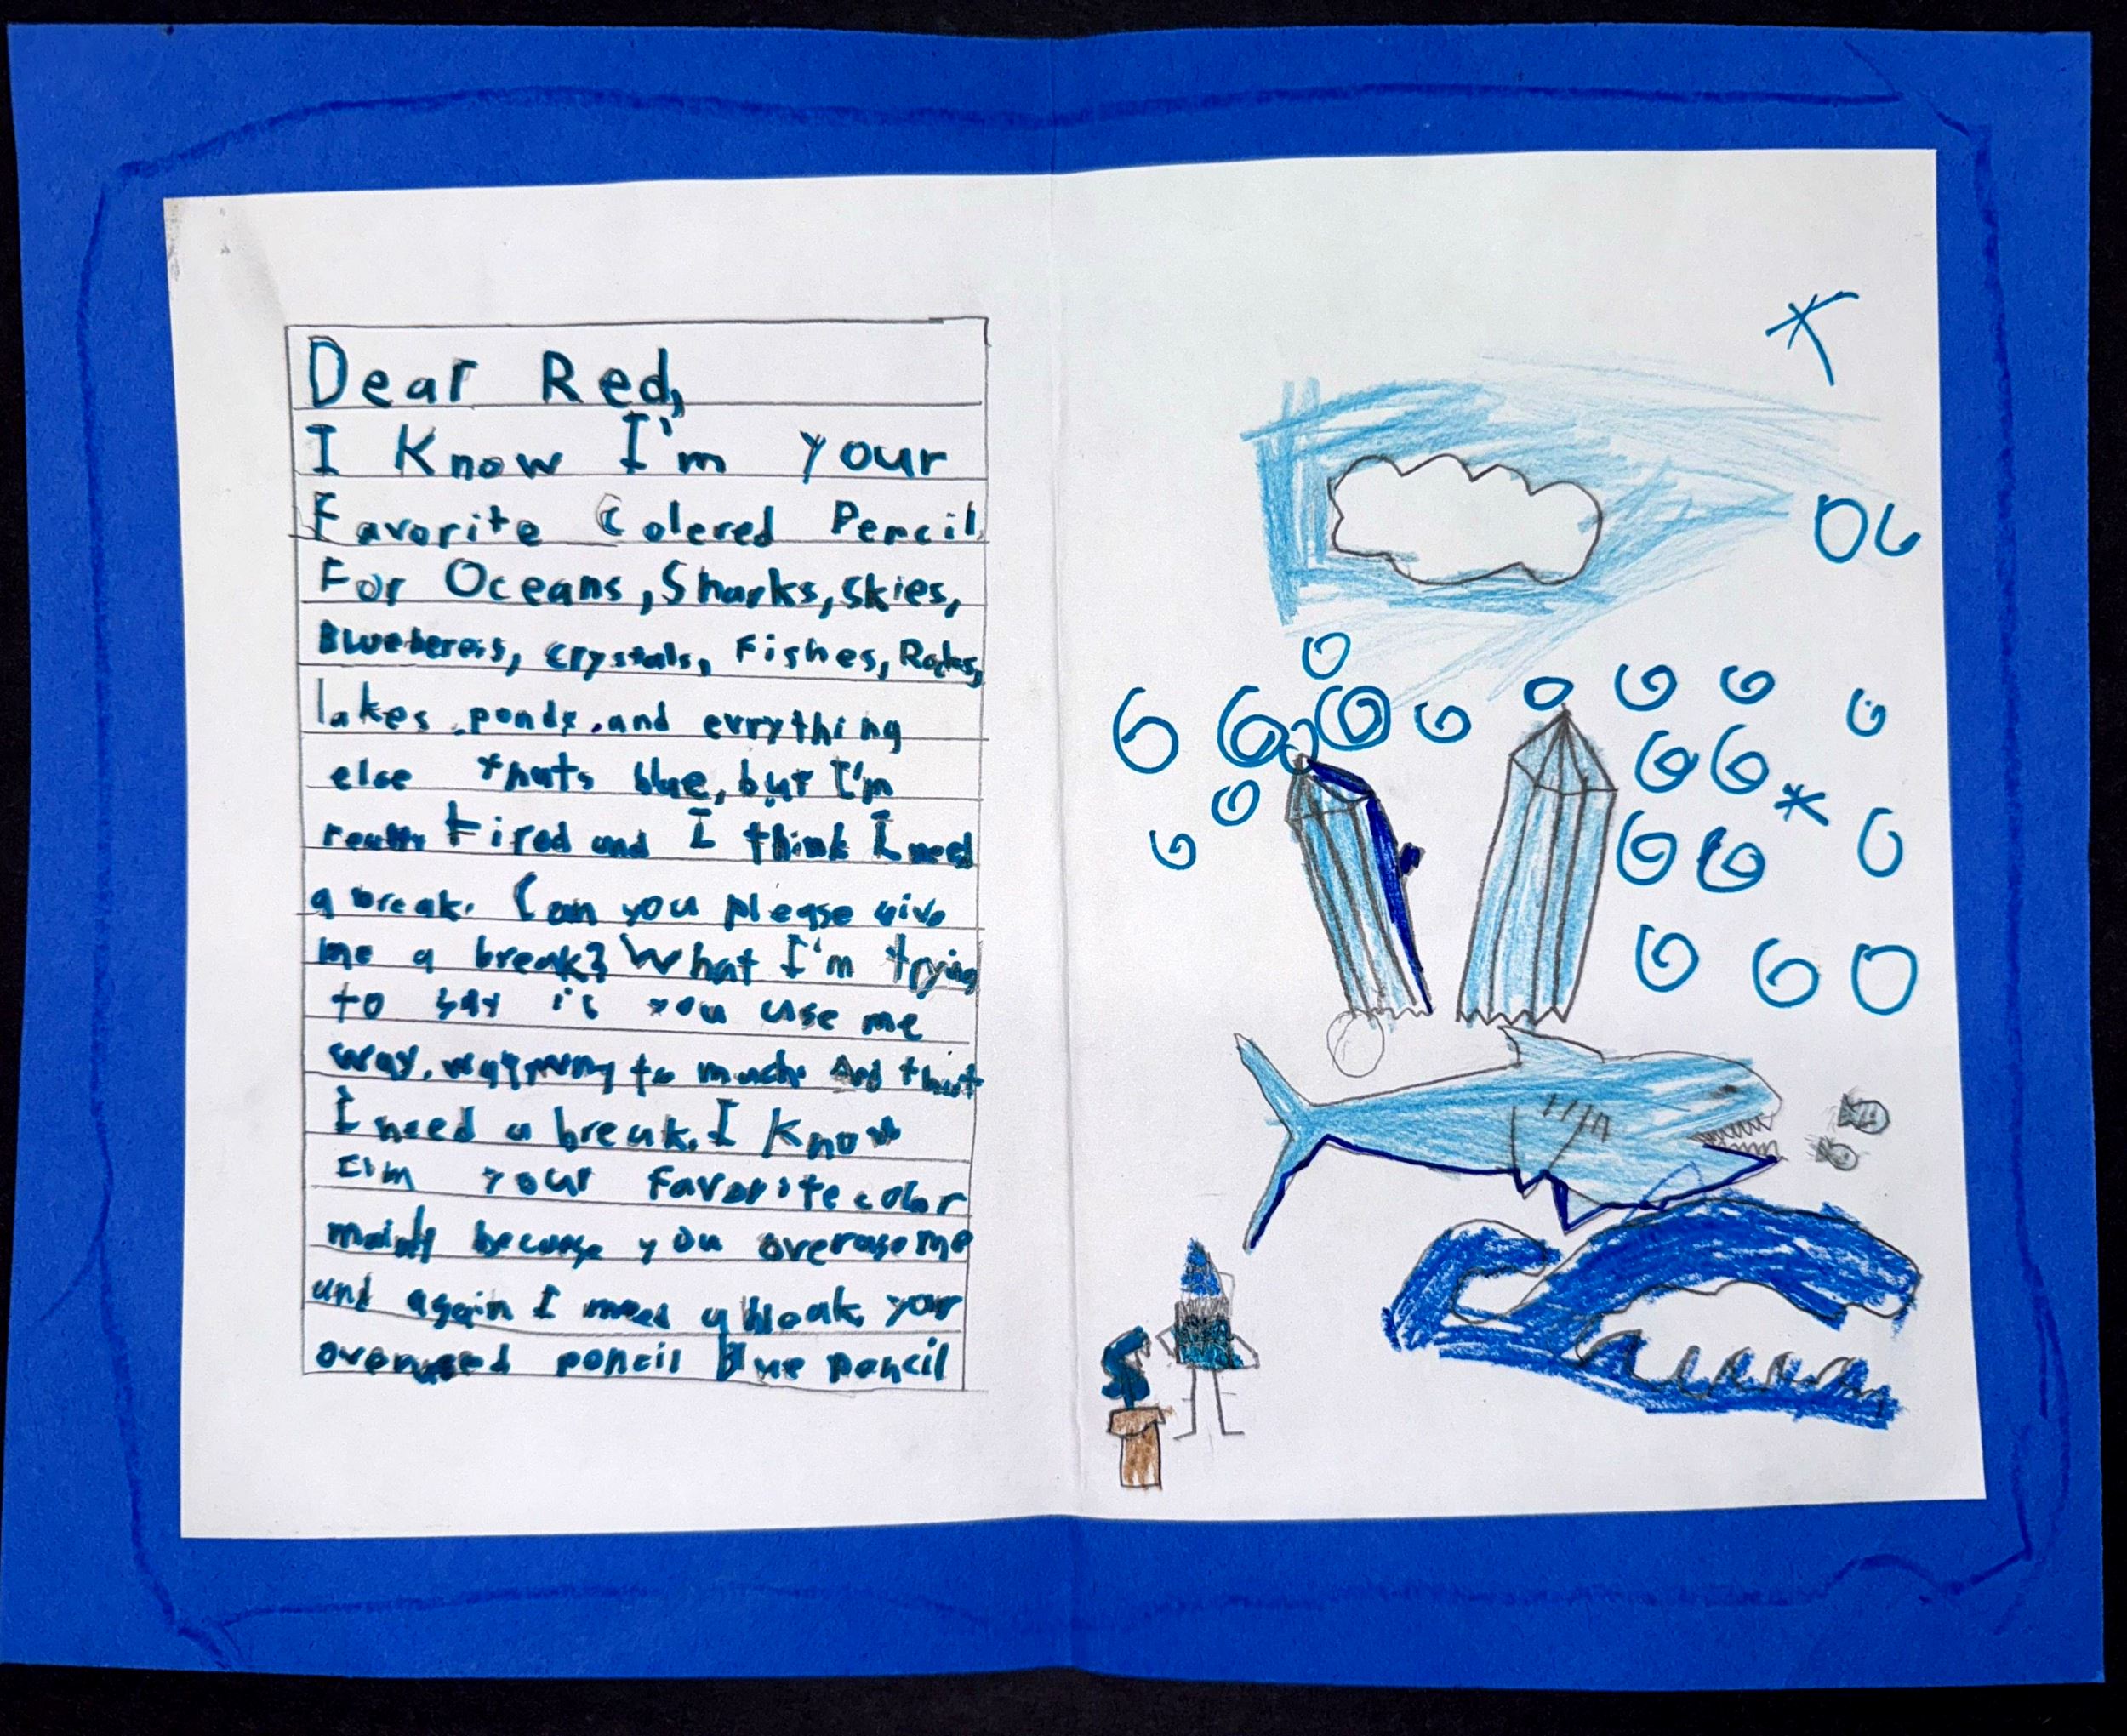 Dear Red,
I Know I'm your
Favorite Colered Pencil
For Oceans, Sharks, skies,
Bluebereis, crystals, Fishes, Rocks,
lakes, ponds, and evrything
else thats blue, but I'm
really tired and I think I need
a break. Can you please give
me a break? What I'm trying
to say is you use me
way, way to much. And that
I need a break. I know
I'm your favorite color
mainly because you overuse me
and again I need a break your
overused pencil Blue pencil